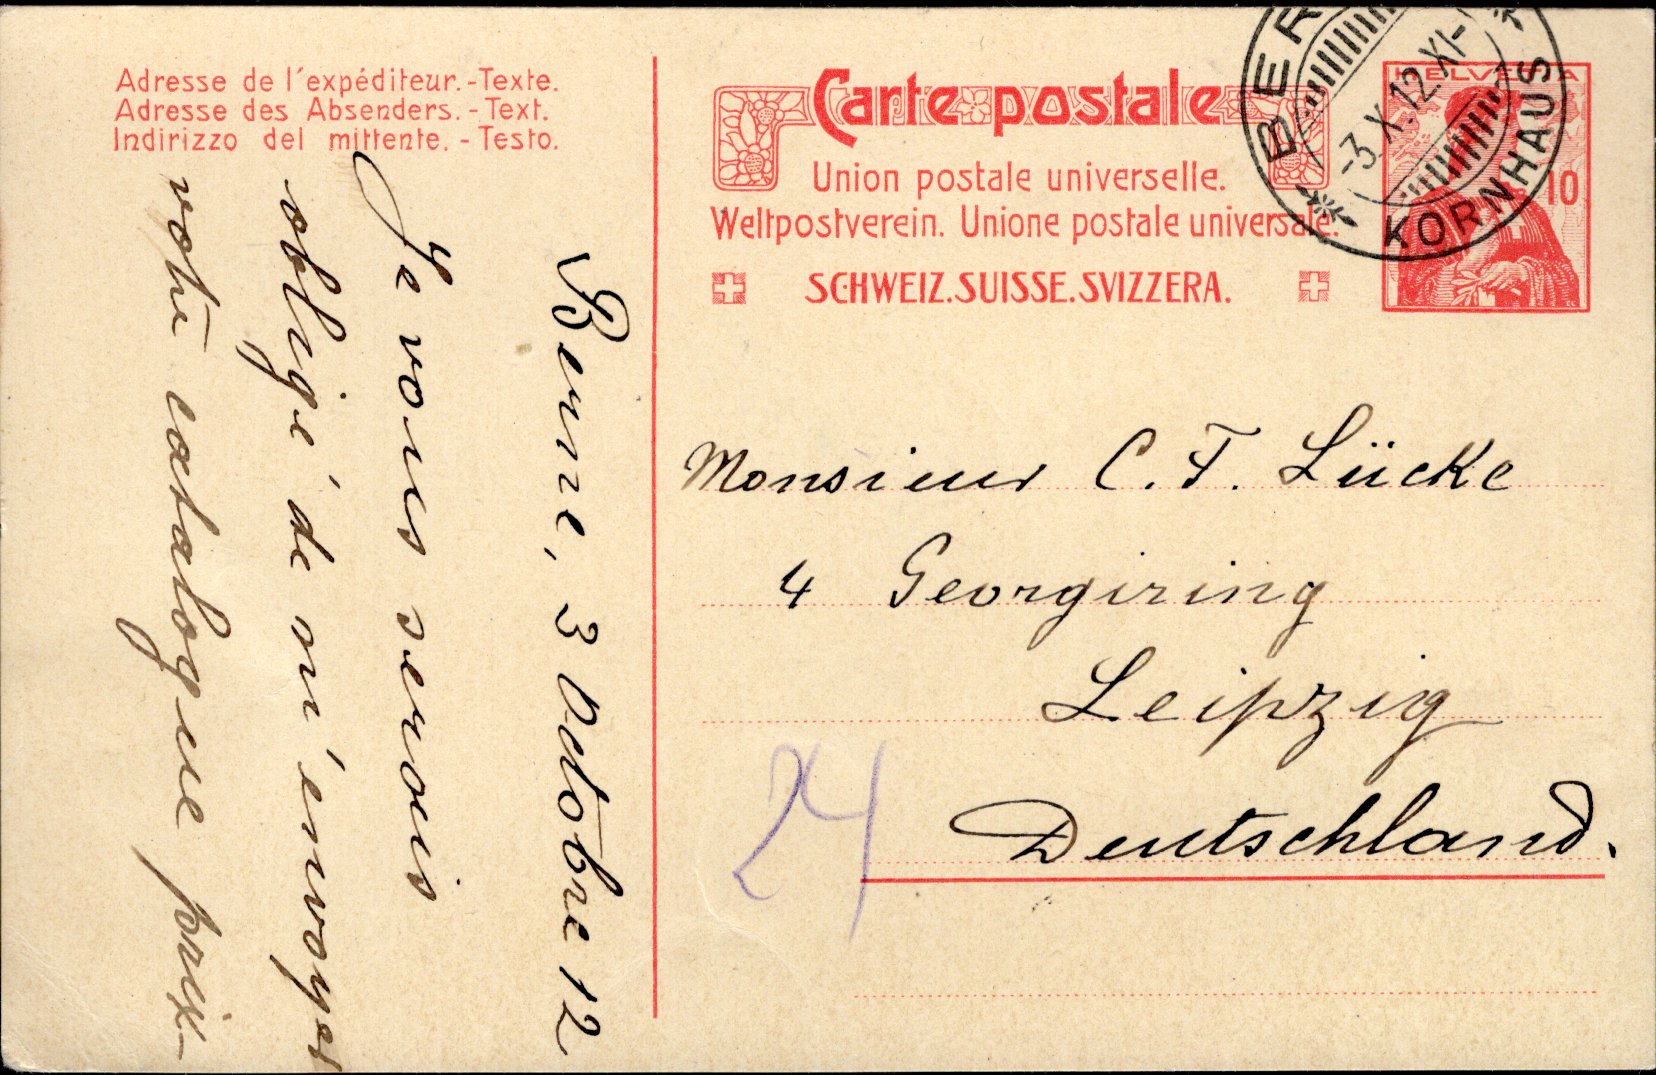 Adresse de l'expéditeur.-Texte.
Adresse des Absenders.-Text.
Indirizzo del mittente.-Testo.
Carte postale
Union postale universelle.
Weltpostverein. Unione postale universale.
SCHWEIZ.SUISSE.SVIZZERA.
HELVETIA
10
BER
-3.X.12.XI-
KORNHAUS
Monsieur C. F. Lücke
4 Georgiring
Leipzig
Deutschland.
24
Berne, 3 Octobre 12
Je vous serais
obligé de m'envoyer
votre catalogue prix-